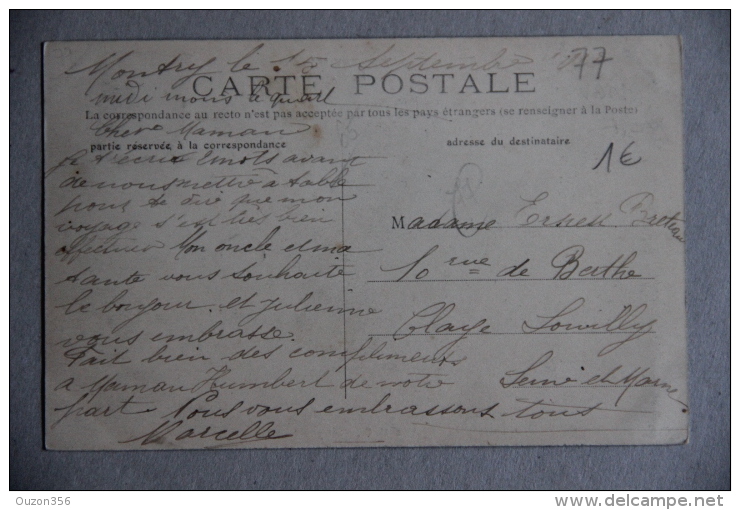 Montry le 15 Septembre
77
midi moins le quart
CARTE POSTALE
La correspondance au recto n'est pas acceptée par tous les pays étrangers (se renseigner à la Poste)
Chère Maman
partie réservée à la correspondance
adresse du destinataire
1€
Je t'écris 2 mots avant
de nous mettre à table
pour te dire que mon
voyage s'est très bien
effectuer Mon oncle et ma
tante vous souhaite
le bonjour. et Julienne
vous embrasse.
Fait bien des compliments
a Maman Humbert de notre
part Nous vous embrassons tous
Marcelle
Madame Ernest
10 rue de Berthe
Claye Souilly
Seine et Marne
Ouzon356
http://ouzon356.delcampe.net